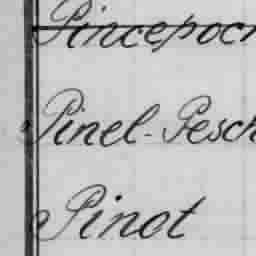 Pincepoc
Pinel-Pesch
Pinot